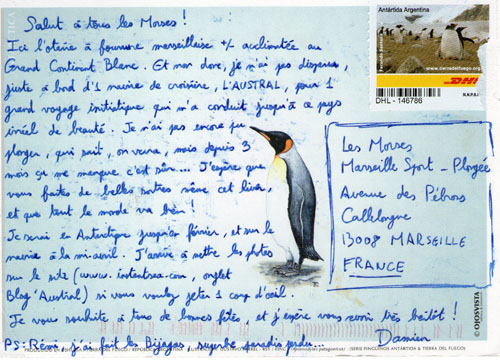 Salut à tous les Morses !
Ici l'otarie à fourrure marseillaise +/- acclimatée au
Grand Continent Blanc. Et non dore, je n'ai pas disparu,
juste à bord d'1 navire de croisière, L'AUSTRAL, pour 1
grand voyage initiatique qui m'a conduit jusqu'à ce pays
irréel de beauté. Je n'ai pas encore pu
plonger, qui sait, on verra, mais depuis 3
mois ça me manque c'est sûr... J'espère que
vous faites de belles sorties même cet hiver,
et que tout le monde va bien !
Je serai en Antarctique jusqu'en février, et sur le
navire à la mi-avril. J'arrive à mettre les photos
sur le site (www. .com, onglet
Blog Austral) si vous voulez jeter 1 coup d'œil.
Je vous souhaite à tous de bonnes fêtes, et j'espère vous revoir très bientôt !
Damien
PS: Rémi, j'ai fait les Bijagos, superbe paradis perdu...
Les Morses
Marseille Sport - Plongée
Avenue des Pébrons
Callelongue
13008 MARSEILLE
FRANCE
Antártida Argentina
www.tierradelfuego.org.ar
DHL
R.N.P.S.P.
DHL - 146786
© OJOSVISTA
(SERIE PINGÜINOS ANTÁRTIDA & TIERRA DEL FUEGO)